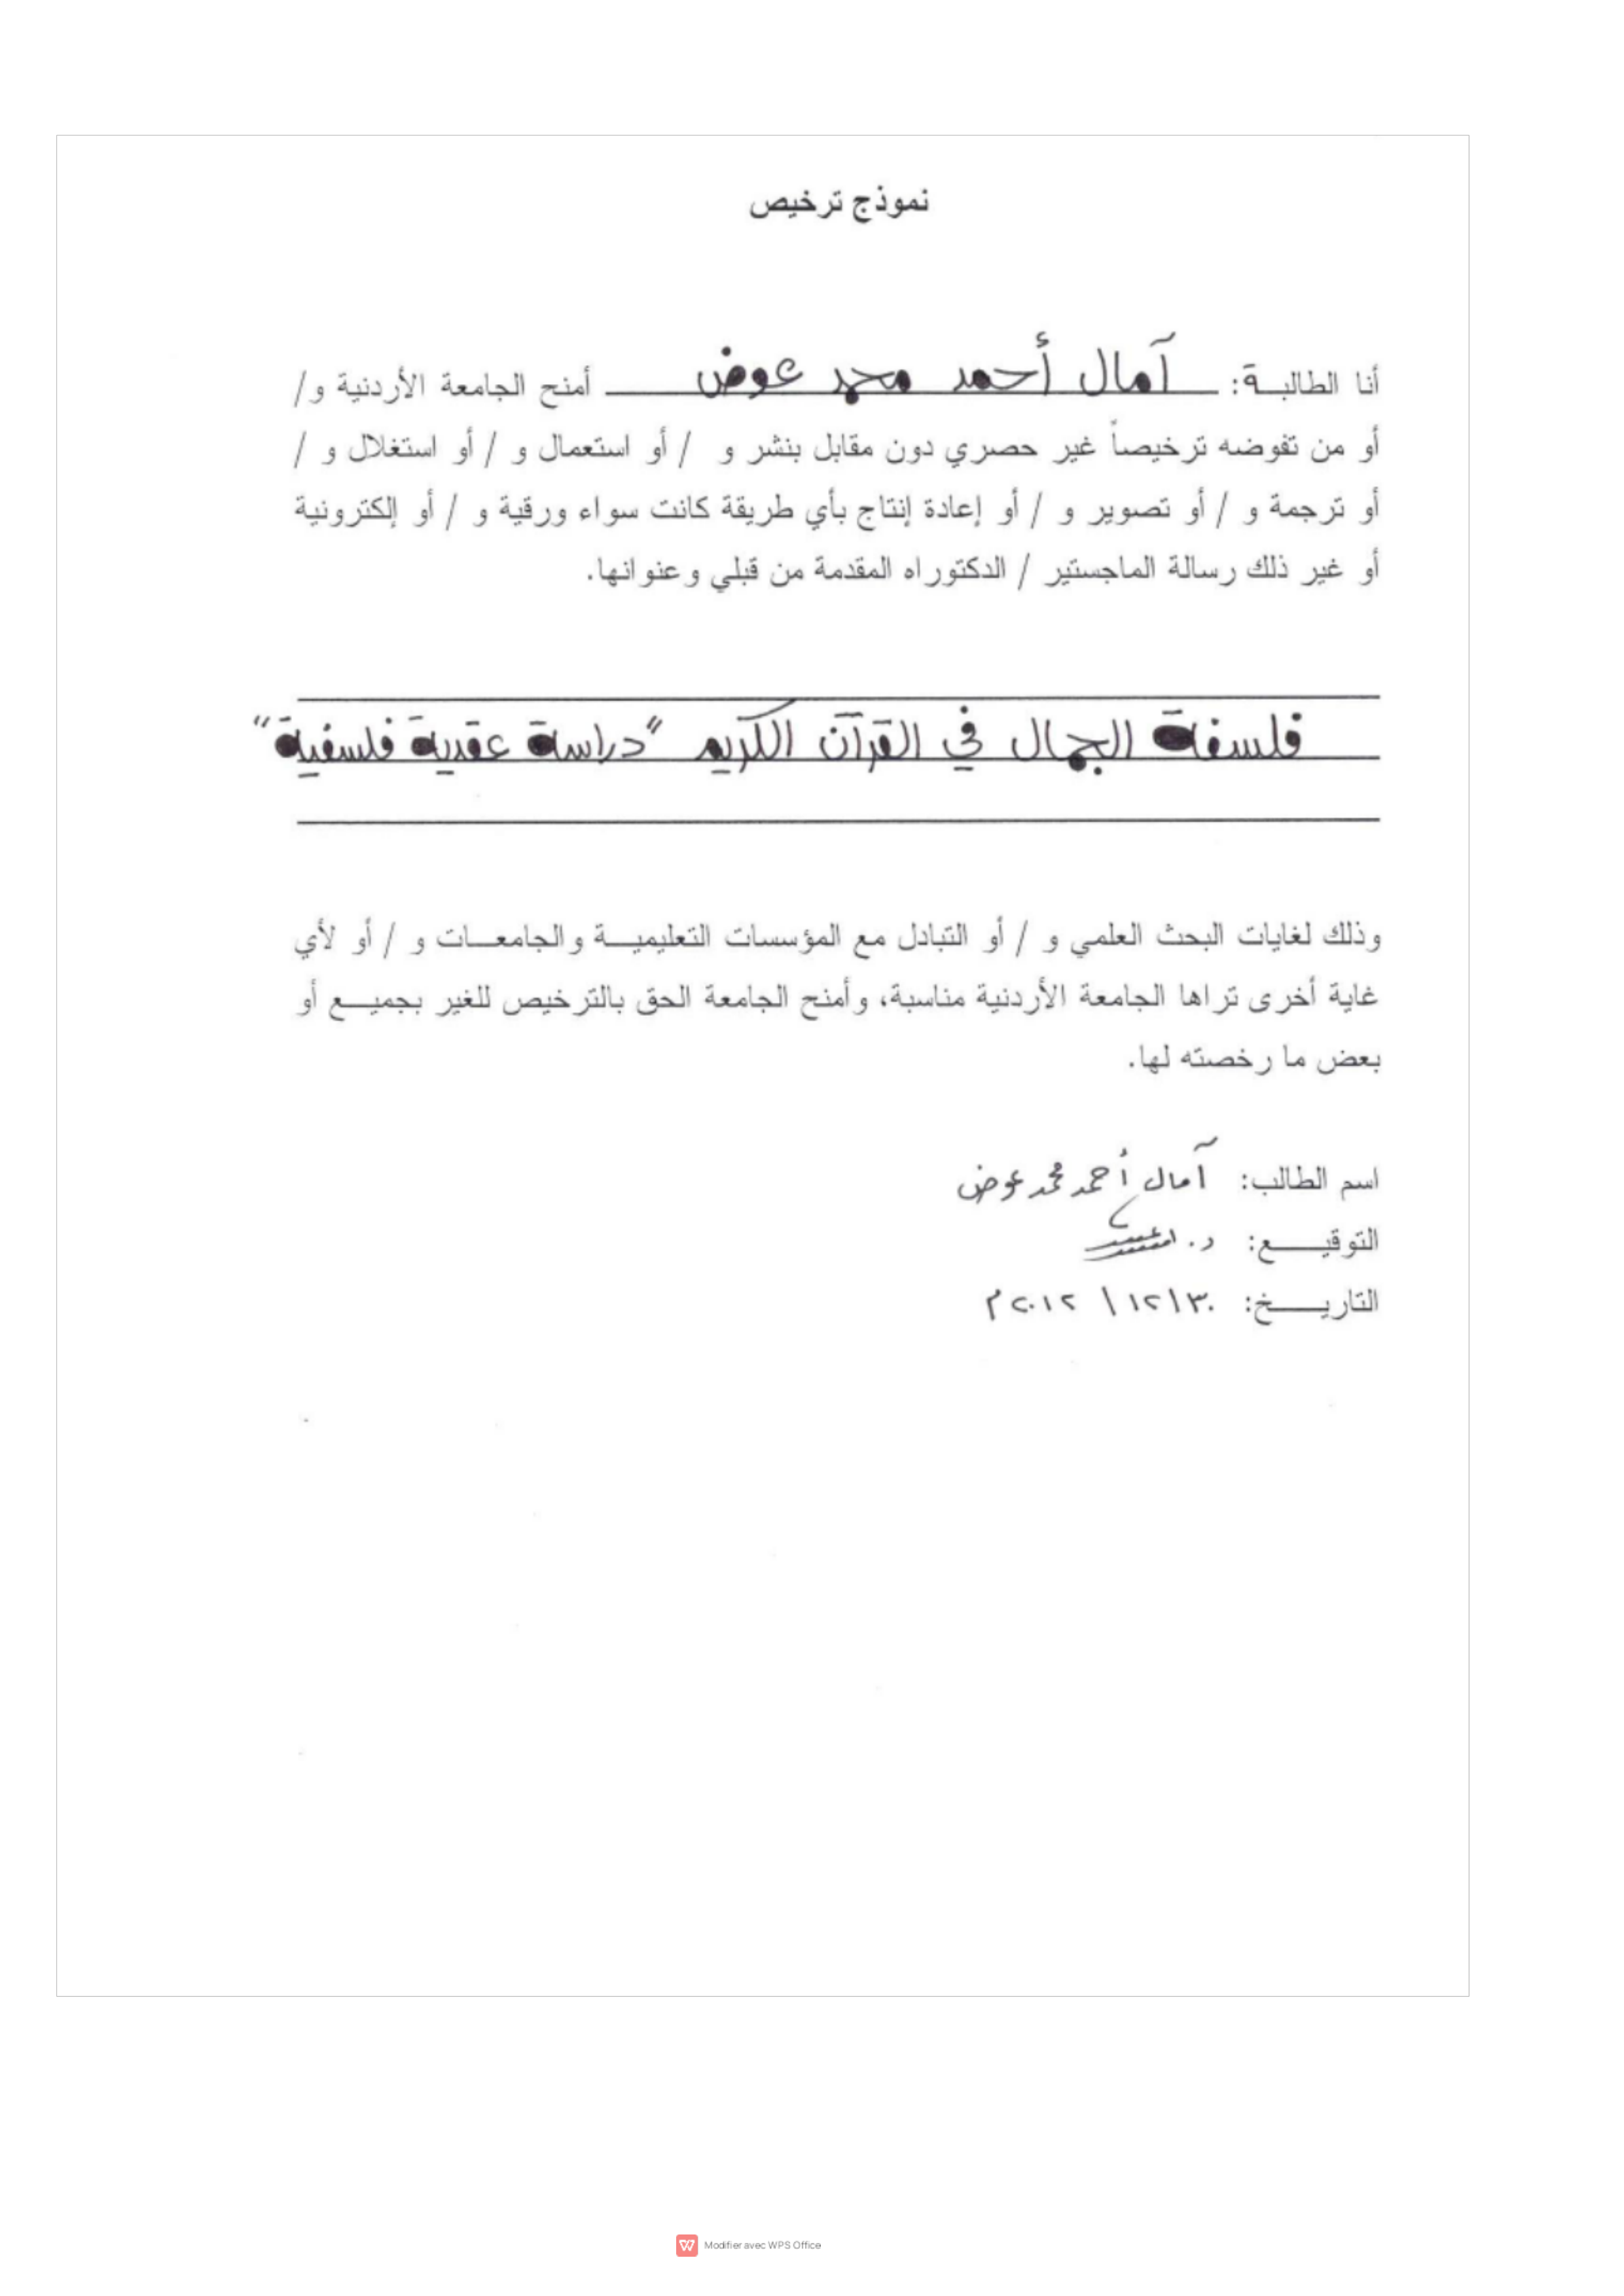 نموذج ترخيص
أنا الطالبة: آمال أحمد محمد عوض أمنح الجامعة الأردنية و/
أو من تفوضه ترخيصاً غير حصري دون مقابل بنشر و / أو استعمال و / أو استغلال و /
أو ترجمة و / أو تصوير و / أو إعادة إنتاج بأي طريقة كانت سواء ورقية و / أو إلكترونية
أو غير ذلك رسالة الماجستير / الدكتوراه المقدمة من قبلي وعنوانها.
فلسفة الجمال في القرآن الكريم "دراسة عقدية فلسفية"
وذلك لغايات البحث العلمي و / أو التبادل مع المؤسسات التعليمية والجامعات و / أو لأي
غاية أخرى تراها الجامعة الأردنية مناسبة، وأمنح الجامعة الحق بالترخيص للغير بجميع أو
بعض ما رخصته لها.
اسم الطالب: آمال أحمد محمد عوض
التوقيع: د.
التاريخ: ٣٠\١٢\ ٢٠١٢م
Modifier avec WPS Office